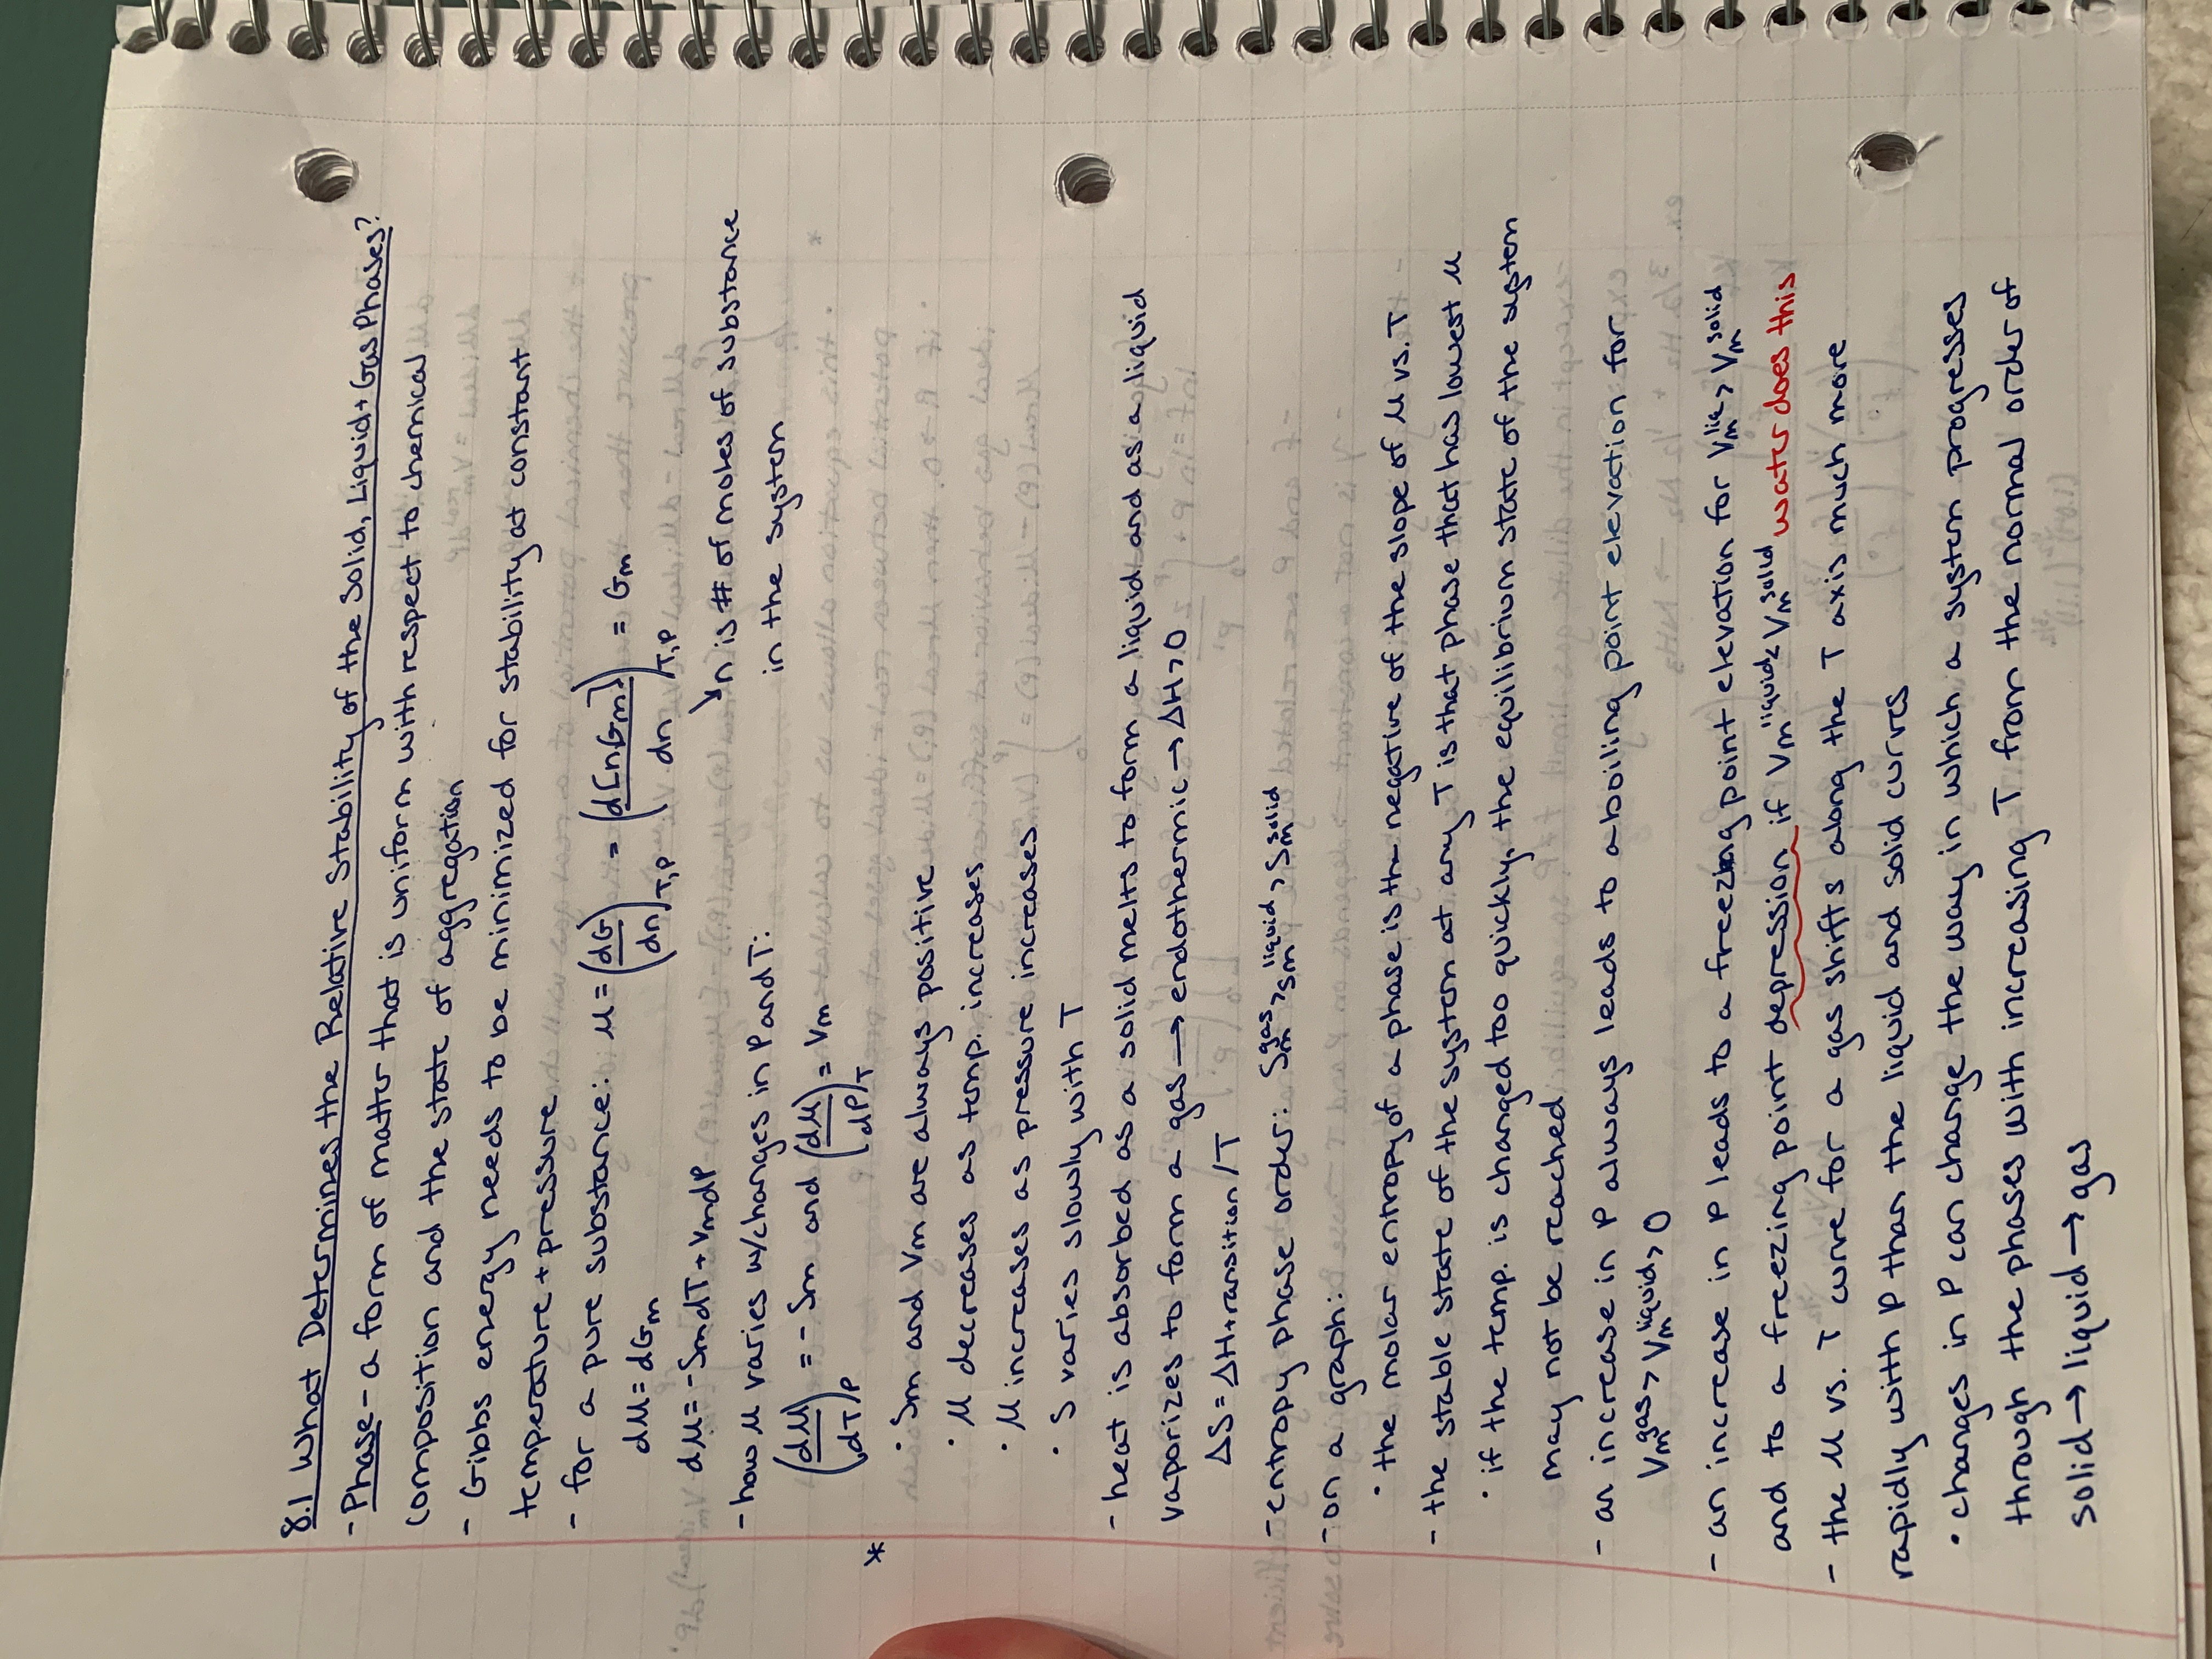 8.1 What Determines the Relative Stability of the Solid, Liquid + Gas Phases?
- Phase - a form of matter that is uniform with respect to chemical
composition and the state of aggregation
- Gibbs energy needs to be minimized for stability at constant
temperature + pressure
- for a pure substance: μ = (dG/dn)T,P = (d[nGm]/dn)T,P = Gm
dμ = dGm
dμ = -SmdT + VmdP
↘ n is # of moles of substance
in the system
- how μ varies w/changes in P and T:
(dμ/dT)P = - Sm and (dμ/dP)T = Vm
*
· Sm and Vm are always positive
· μ decreases as temp. increases
· μ increases as pressure increases
· S varies slowly with T
- heat is absorbed as a solid melts to form a liquid and as a liquid
vaporizes to form a gas → endothermic → ΔH > 0
ΔS = ΔHtransition / T
- entropy phase order: Sm^gas > Sm^liquid > Sm^solid
- on a graph:
· the molar entropy of a phase is the negative of the slope of μ vs. T
- the stable state of the system at any T is that phase that has lowest μ
· if the temp. is changed too quickly, the equilibrium state of the system
may not be reached
- an increase in P always leads to a boiling point elevation for
Vm^gas > Vm^liquid > 0
- an increase in P leads to a freezing point elevation for Vm^liq > Vm^solid
and to a freezing point depression if Vm^liquid < Vm^solid water does this
- the μ vs. T curve for a gas shifts along the T axis much more
rapidly with P than the liquid and solid curves
· changes in P can change the way in which a system progresses
through the phases with increasing T from the normal order of
solid → liquid → gas